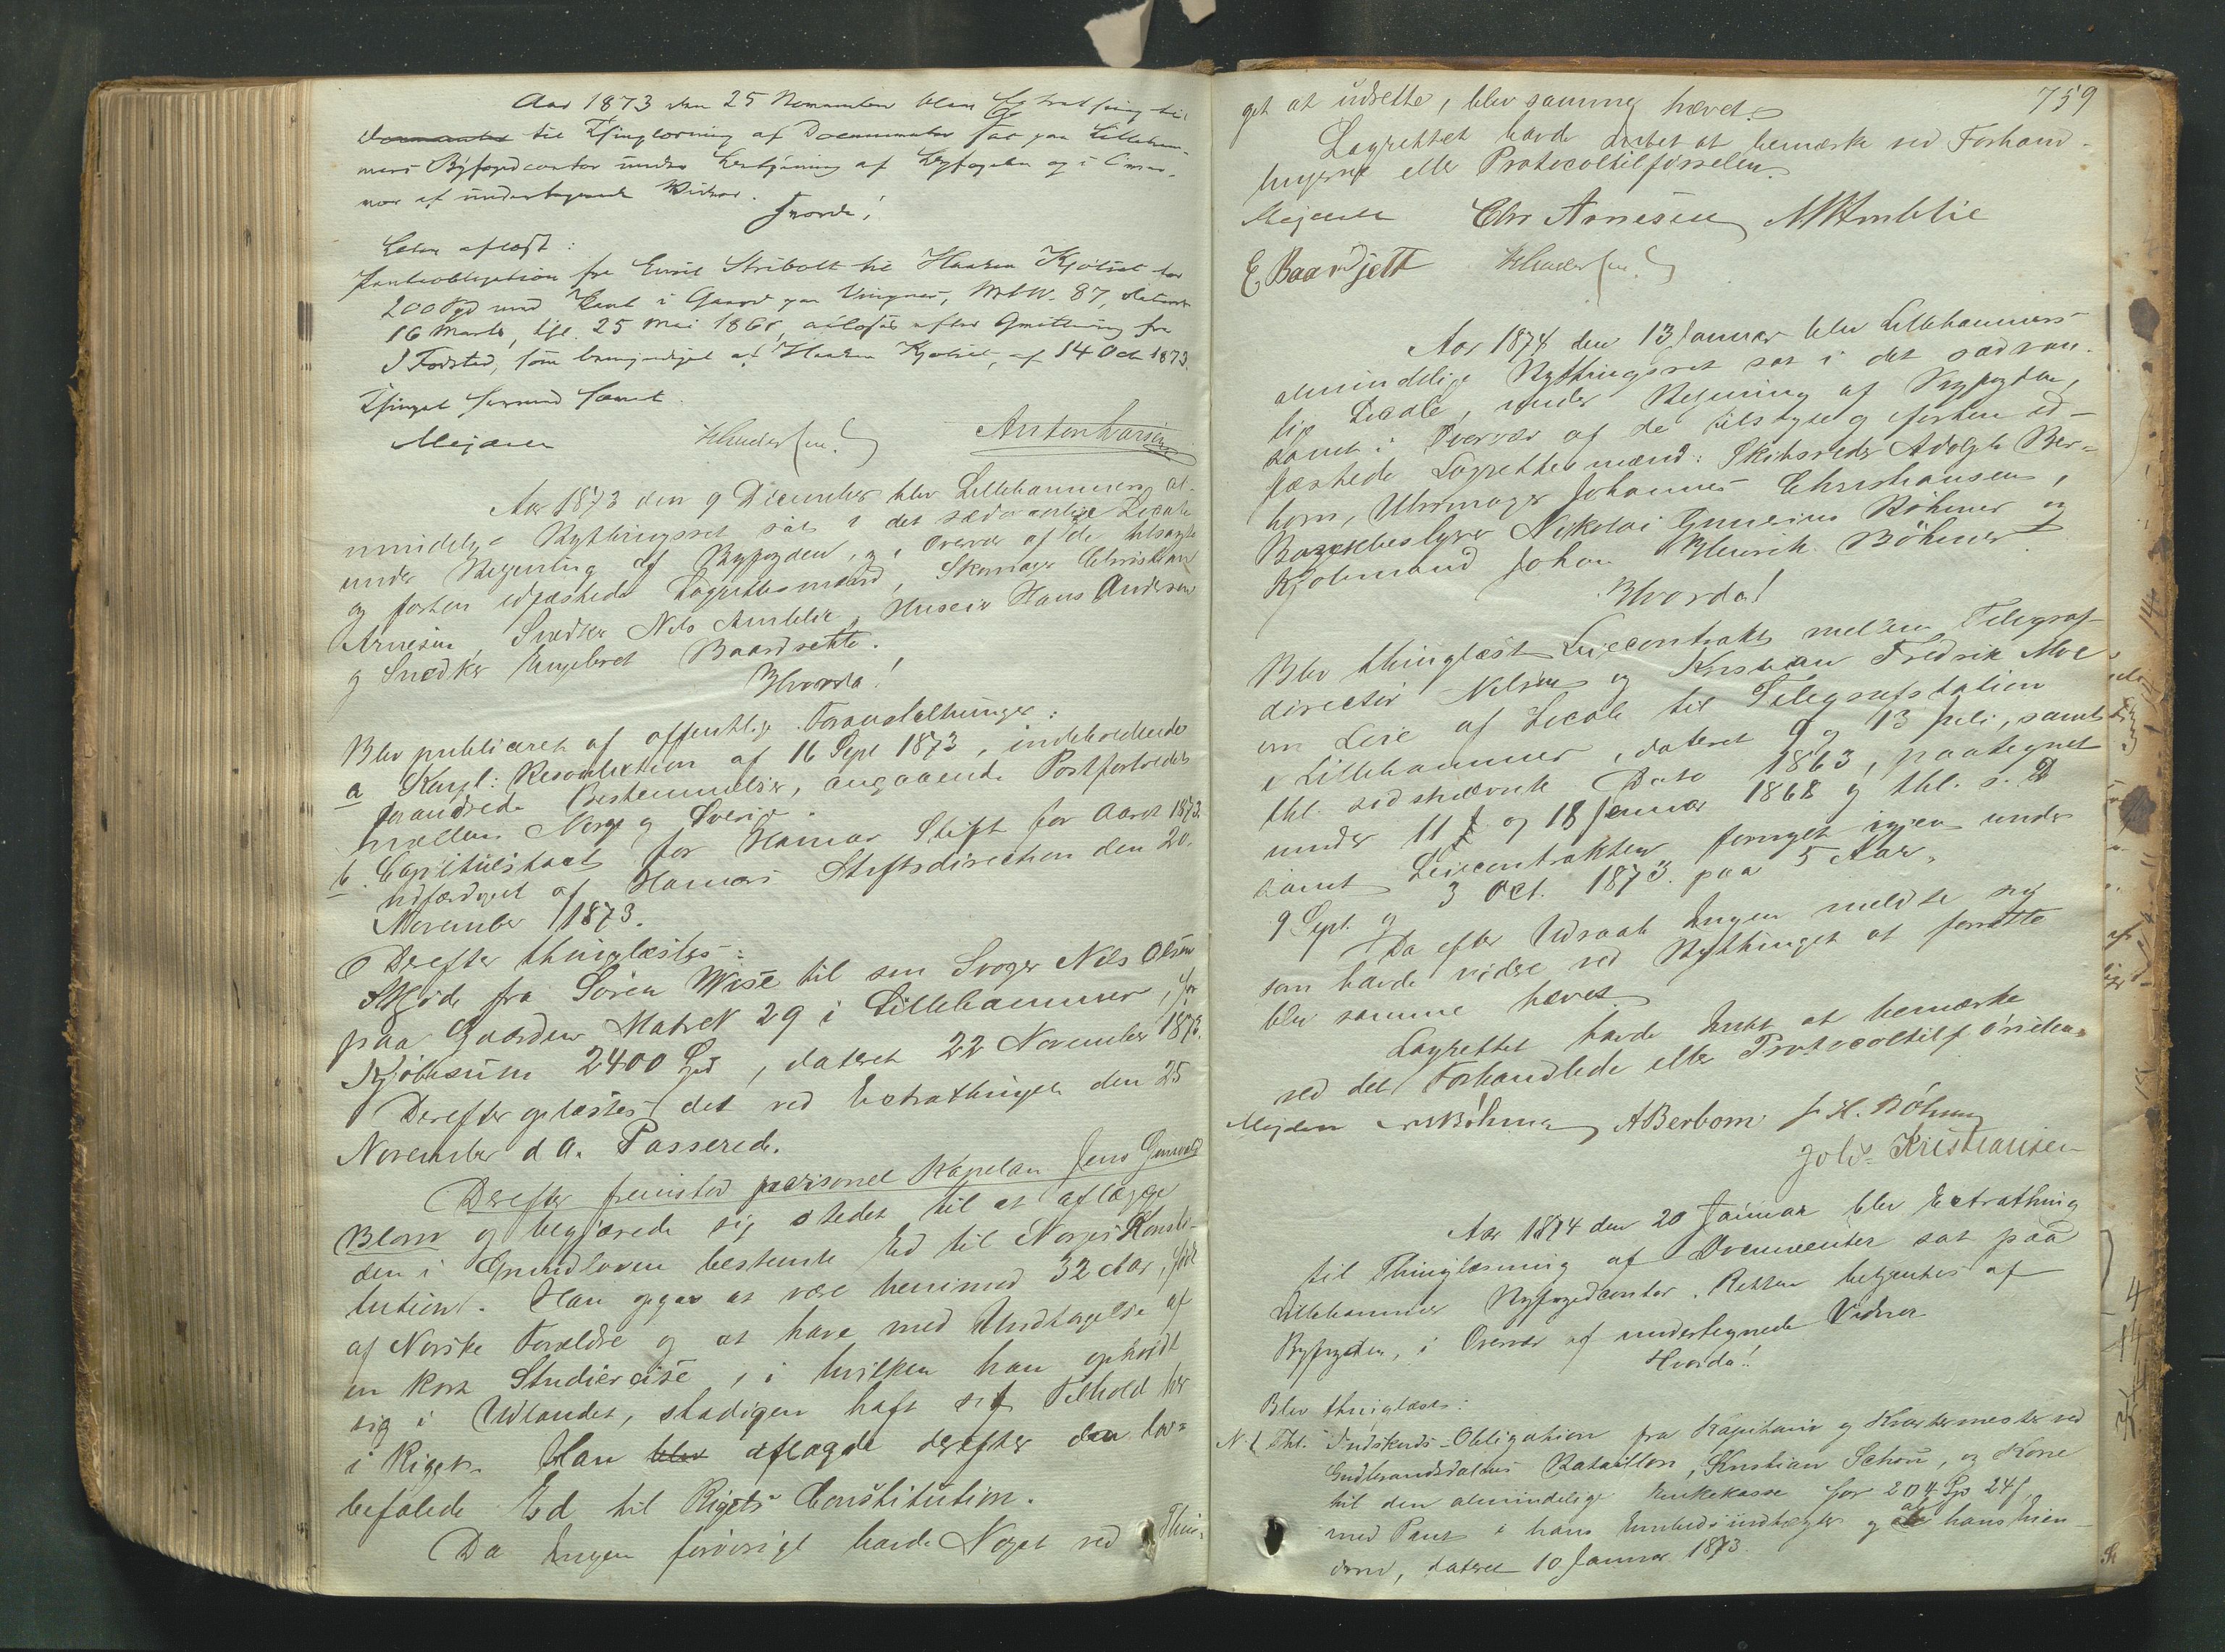 Aar 1873 den 25 November blev Extrathing til
Documenter til Thinglæsning af Documenter sat paa Lilleham-
mers Byfogedcontor under Betjening af Byfogden og i Over-
vær af undertegnede Vidner.
Hvorda!
Blev aflæst:
Panteobligation fra Emil Stribolt til Haaken Kjølset for
200 Spd med Pant i Gaard paa Vingnes, Mt N. 87, dateret
16 Marts, tgl. 25 Mai 186, aflæses efter Qvittering fra
J Fodstad, som bemyndiget af Haaken Kjølset, af 14 Oct 1873.
Thinget hævet.
Mejdell
Anton Larsen
Aar 1873 den 9 December blev Lillehammers al-
mindelige Bythingsret sat i det sædvanlige Locale
under Betjening af Byfogden, og i Overvær af de tilsagte
og forhen edfæstede Lagrettesmænd, Skomager Christian
Arnesen, Snedker Nils Amblie, Huseier Hans Andersen
og Snedker Engebret Baardsette.
Hvorda!
Blev publiceret af offentlige Foranstaltninger:
a Kongl: Resolution af 16 Sept 1873, indeholdende
forandrede Bestemmelser, angaaende Postforbindelse
mellem Norge og Sverig.
b. Capitulstaxt for Hamar Stift for Aaret 1873.
udfærdiget af Hamars Stiftsdirection den 20.
November 1873.
Derefter thinglæstes:
Skjøde fra Sören Wise til sin Svoger Nils Olsen
paa Gaarden Matr N 29 i Lillehammer, for
Kjøbesum 2400 Spd, dateret 22 November 1873.
Derefter oplæstes det ved Extrathinget den 25
November d A. Passerede.
Derefter fremstod personel Kapelan Jens Gunvald
Blom og begjærede sig stedet til at aflægge
den i Grundloven bestemte Ed til Norges Konsti-
tution. Han opgav at være henimod 32 Aar, født
af Norske Forældre og at have med Undtagelse af
en kort Studiereise, i hvilken han opholdt
sig i Udlandet, stadigen haft sit Tilhold her
i Riget. Han blev aflagde derefter den lov-
befalede Ed til Rigets Constitution.
Da Ingen forövrigt havde Noget ved Thin-
759
get at udrette, blev samme hævet.
Lagrettet havde Intet at bemærke ved Forhand-
lingerne eller Protocoltilförselen.
Mejdell Chr Arnesen N Amblie
E Baardsett
Aar 1874 den 13 Januar blev Lillehammers
almindelige Bythingsret sat i det sædvan-
lige Locale, under Betjening af Byfogden,
samt i Overvær af de tilsagte og forhen ed-
fæstede Lagrettesmænd: Skibsreder Adolph Ber-
bom, Uhrmager Johannes Christiansen,
Bogholder Nikolai Böhmer og
Kjøbmand Johan Henrik Böhmer.
Hvorda!
Blev thinglæst Leiecontrakt mellem Telegraf-
director Nielsen og Kristian Fredrik Moe
om Leie af Locale til Telegrafstation
i Lillehammer, dateret 9 og 13 Juli, samt
thl. sidstnævnte Dato 1863, paategnet
under 11 og 18 Januar 1868 og thl. s. D
samt Leiecontrakten fornyet igjen under
9 Sept. og 3 Oct. 1873. paa 5 Aar.
Da efter Udraab Ingen meldte sig
som havde videre ved Bythinget at forrette
blev samme hævet.
Lagrettet havde Intet at bemærke
ved det Forhandlede eller Protocoltilförselen.
Mejdell N Böhmer A Berbom J. H. Böhmer
Johs Kristiansen
Aar 1874 den 20 Januar blev Extrathing
til Thinglæsning af Documenter sat paa
Lillehammer Byfogedcontor. Retten betjentes af
Byfogden, i Overvær af undertegnede Vidner
Hvorda!
Blev thinglæst:
N. 1 Thl. Indskuds-Obligation fra Kapitain og Kvartermester ved
Gudbrandsdalens Bataillon, Kristian Schou, og Kone
til den almindelige Enkekasse for 204 Spd 24 s,
med Pant i hans Embedsindtægter og al hans Eien-
dom, dateret 10 Januar 1873.